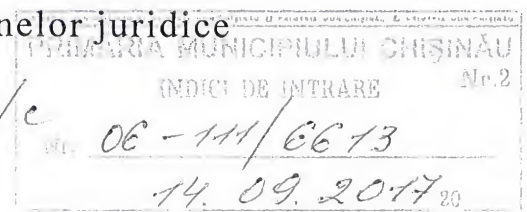 nelor juridice
PRIMĂRIA MUNICIPIULUI CHIŞINĂU
INDICI DE INTRARE Nr.2
/c
Nr. 06-111/6613
14. 09. 2017 20